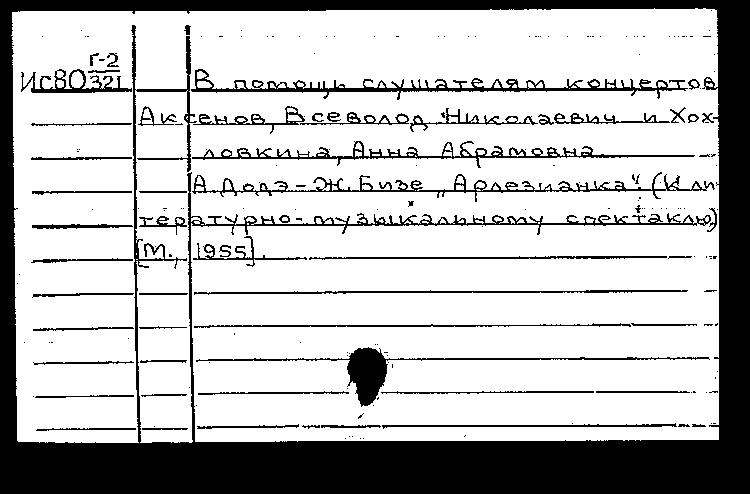 Г-2
Ис80 321 В помощь слушателям концертов
Аксенов, Всеволод Николаевич и Хох-
ловкина, Анна Абрамовна.
А. Додэ - Ж. Бизе „Арлезианка“. (К ли-
тературно-музыкальному спектаклю)
[М., 1955].